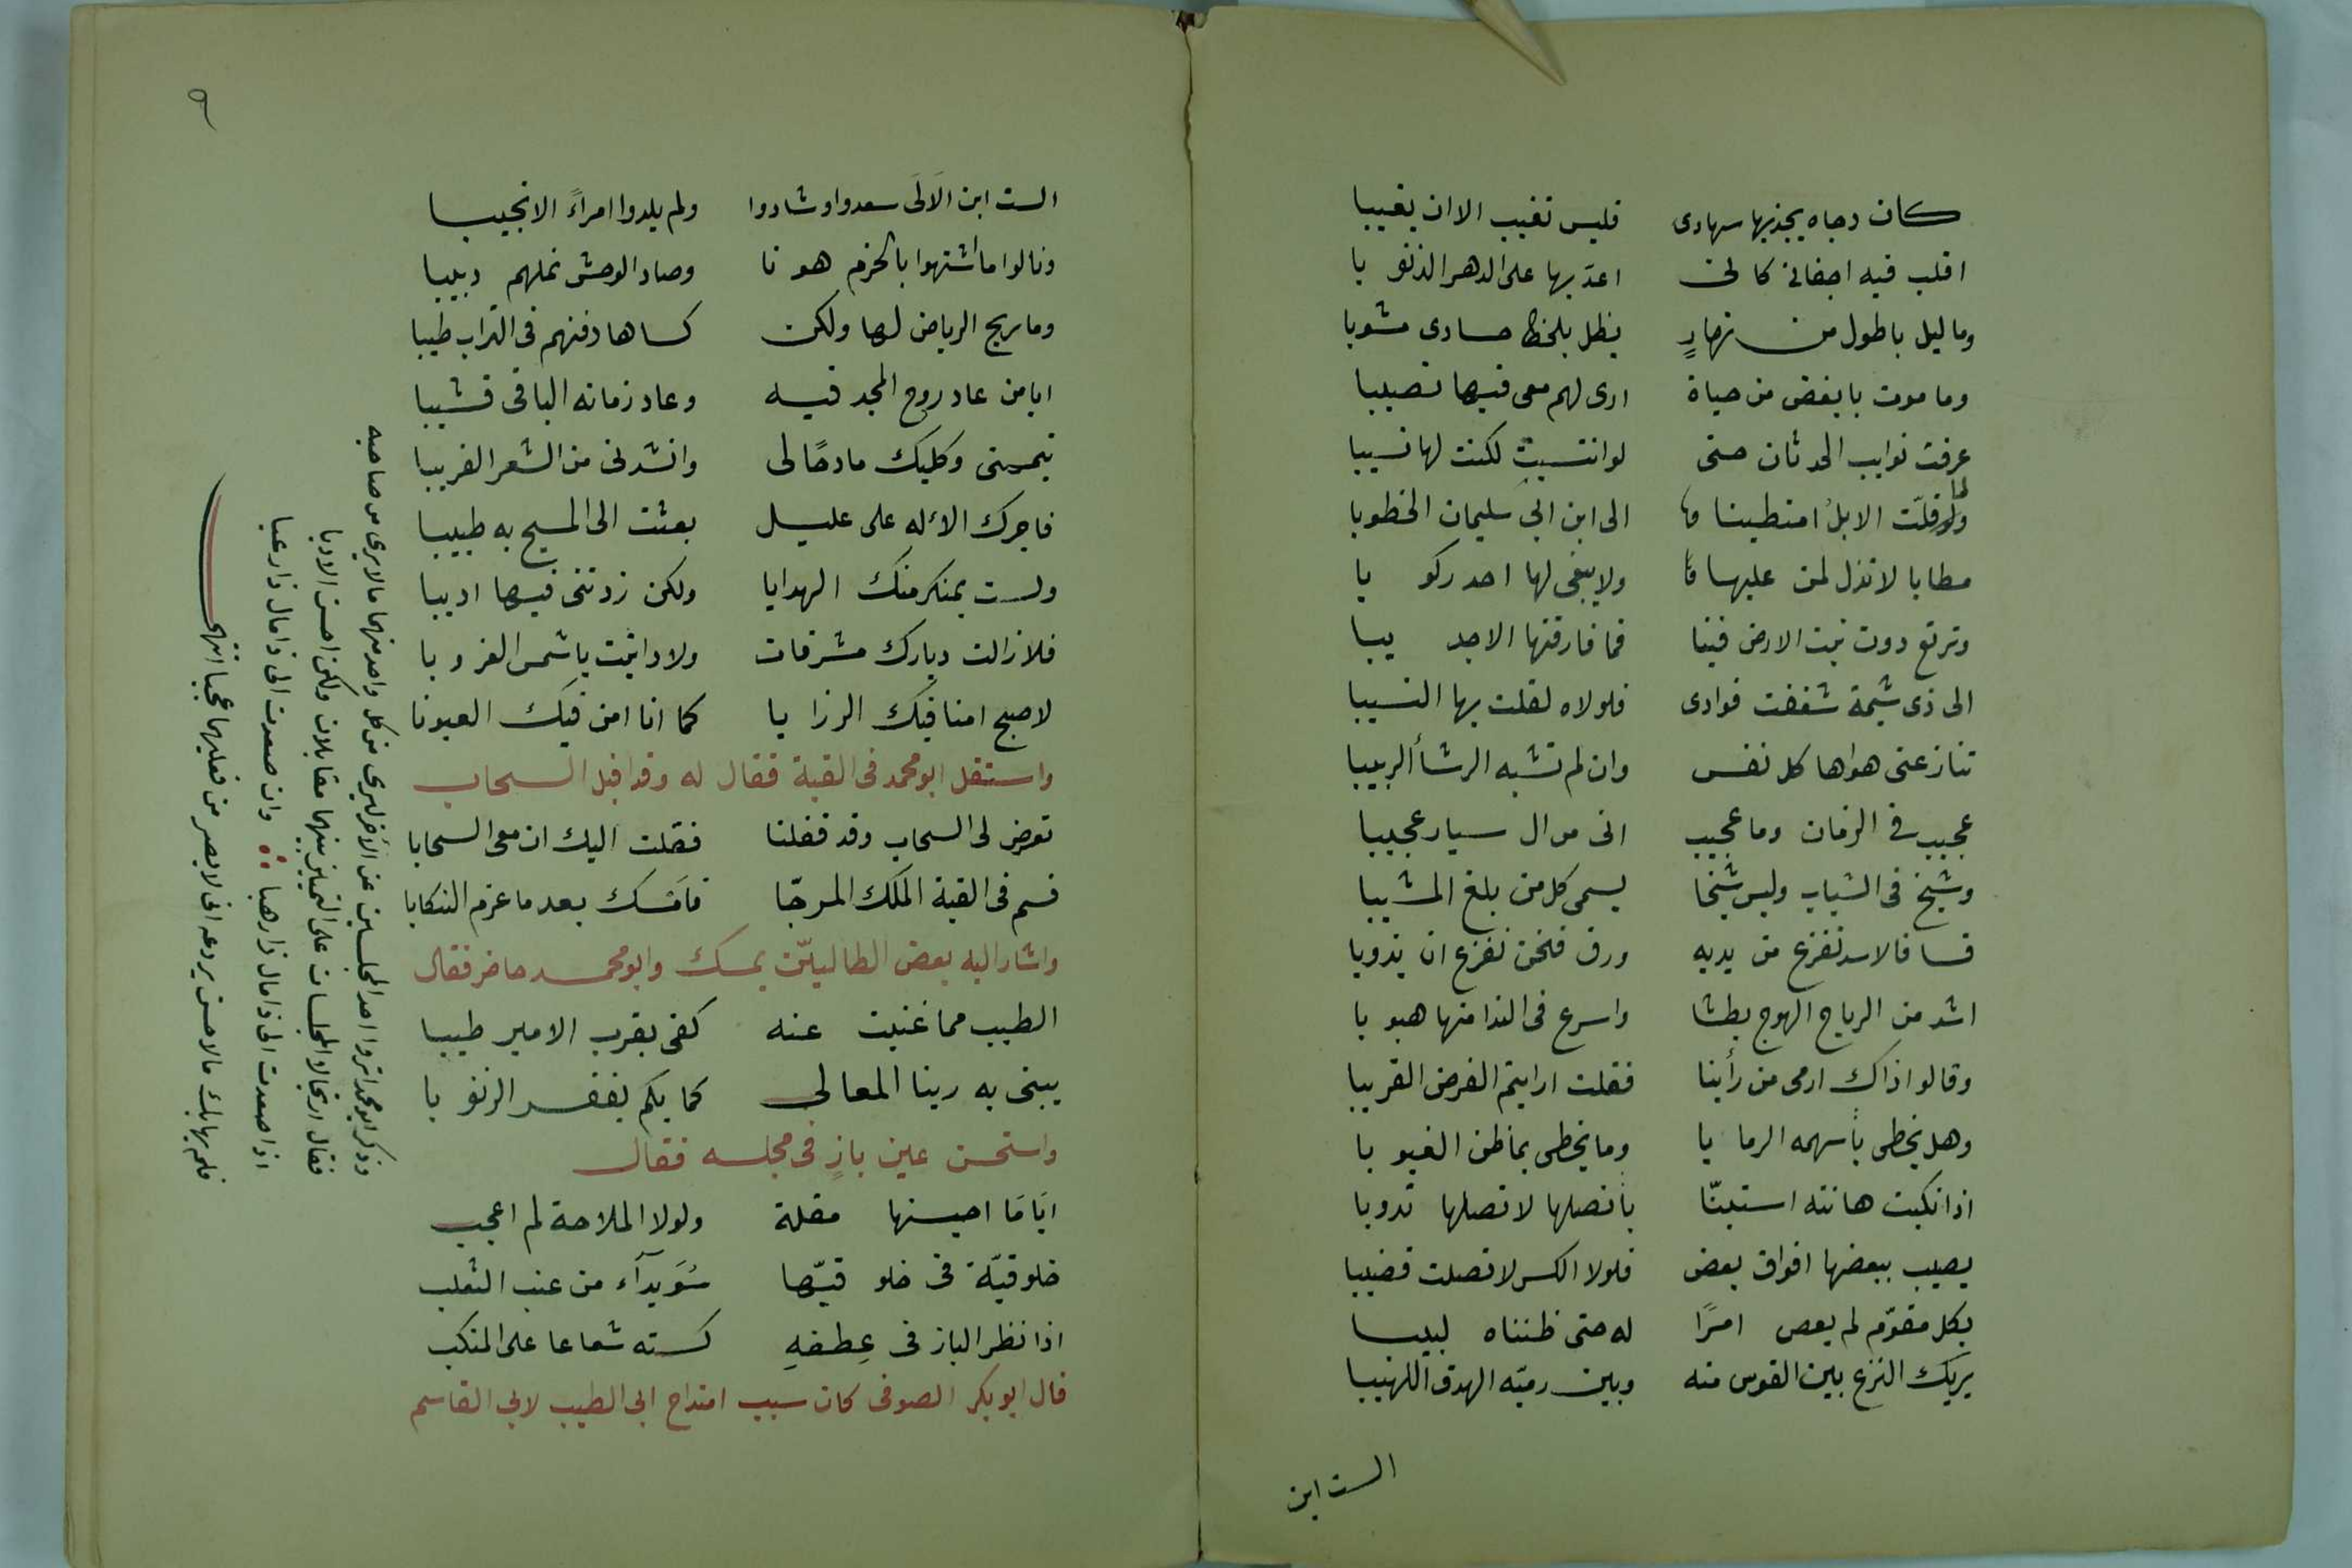 كان دجاه يجذبها سهادى فليس تغيب الا ان يغيبا
اقلب فيه اجفانى كانى اعدّ بها على الدهر الذنو با
وما ليل باطول من نهارٍ يظل بلحظ حسادى مشوبا
وما موت بابغض من حياة ارى لهم معى فيها نصيبا
عرفت نوايب الحدثان حتى لو انتسبت لكنت لها نسيبا
ولما قلّت الابلُ امتطينا الى ابن ابى سليمان الخطوبا
مطايا لا تذل لمن عليها ولا يبغى لها احد ركو با
وترتع دون نبت الارض فينا فما فارقتها الا جد يبا
الى ذى شيمة شغفت فوادى فلولاه لقلت بها النسيبا
تنازعنى هواها كل نفس وان لم تشبه الرشأ الربيبا
عجيب فى الزمان وما عجيب اتى من ال سيار عجيبا
وشيخ فى الشباب وليس شيخا يسمى كل من بلغ المشيبا
قسا فالاسد تفزع من يديه ورق فنحن نفزع ان يذوبا
اشد من الرياح الهوج بطشا واسرع فى الندا منها هبو با
وقالوا ذاك ارمى من رأينا فقلت ارايتم الغرض القريبا
وهل يخطى بأسهمه الرما يا وما يخطى بما ظن الغيو با
اذا نكبت كنانته استبنّا بأنصلها لانصلها ندوبا
يصيب ببعضها افواق بعض فلولا الكسر لاتصلت قضيبا
بكل مقوّم لم يعص امرًا له حتى ظنناه لبيبا
يريك النزع بين القوس منه وبين رميّه الهدف اللهيبا
الست ابن
٩
الست ابن الَالَى سعدوا وشادوا ولم يلدوا امراءً الا نجيبا
ونالوا ما اشتهوا بالحزم هو نا وصاد الوحش نملهم دبيبا
وما ريح الرياض لها ولكن كساها دفنهم فى التراب طيبا
ايا من عاد روح المجد فيه وعاد زمانه الباقى قشيبا
تيممنى وكليك مادحًا لى وانشدنى من الشعر الغريبا
فاجرك الاله على عليل بعثت الى المسيح به طبيبا
ولست بمنكر منك الهدايا ولكن زدتنى فيها اديبا
فلازالت ديارك مشرقات ولا دانيت يا شمس الغرو با
لاصبح امنا فيك الرزا يا كما انا امن فيك العيونا
واستقل ابو محمد فى القبة فقال له وقد اقبل السحاب
تعرض لى السحاب وقد قفلنا فقلت اليك ان معى السحابا
فسم فى القبة الملك المرجّا فامسك بعد ما عزم النسكابا
واشار اليه بعض الطالبيّن بمسك وابو محمد حاضر فقال
الطيب مما غنيت عنه كفى بقرب الامير طيبا
يبنى به ربنا المعالى كما بكم يغفر الزنو با
واستحسن عين بازٍ فى مجلسه فقال
ايَا مَا احيسنها مقلة ولولا الملاحة لم اعجب
خلوقيّة فى خلو قيّها سُوَيدآء من عنب الثعلب
اذا نظر الباز فى عِطفهِ كسته شعاعا على المنكب
قال ابو بكر الصوفى كان سبب امتداح ابى الطيب لابى القاسم
وذكر ابو محمد انزوا احد المجلسين عن الاخر ليرى من كل واحد منهما ما لا يرى من صاحبه
فقال ارتجالا والمجلسات على التمييز بينهما مقابلان ولكن احسن الادبا
اذا صعدت الى ذا مال ذا رهبا وان صعدت الى ذا مال ذا رعبا
فلم يهابك مالا حس يردعه انى لا بصر من فعليهما عجبا انتهى